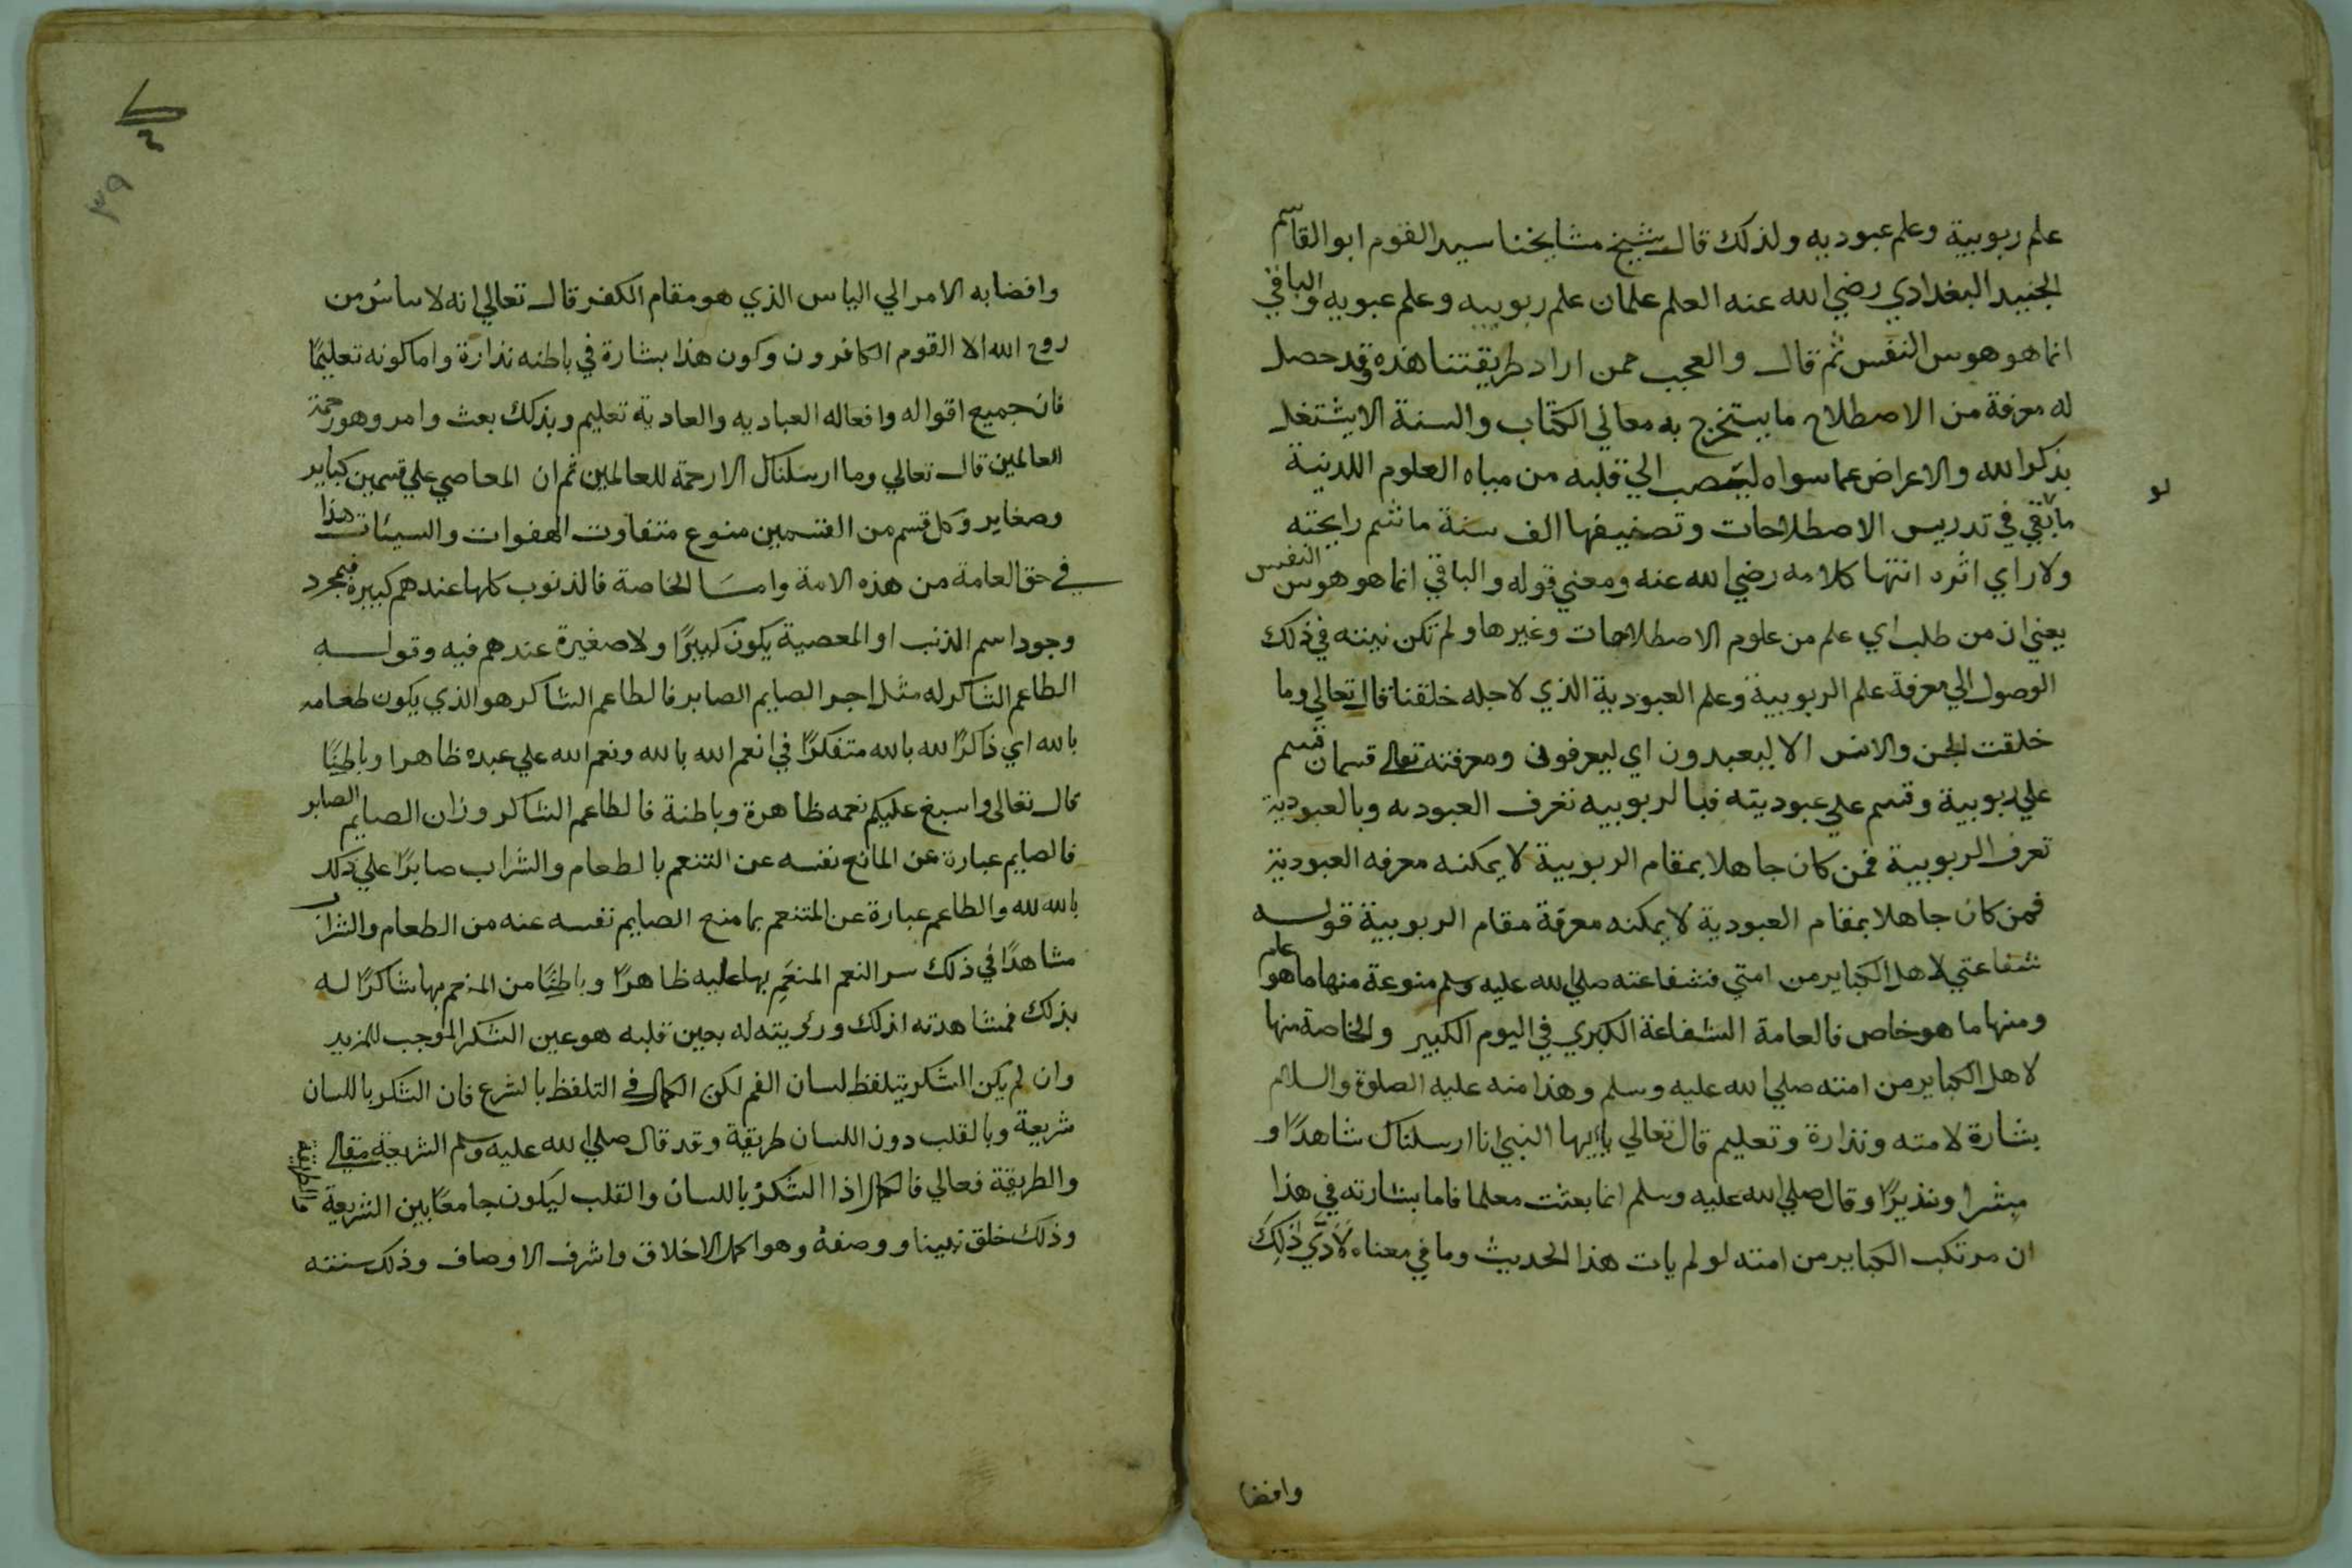 علم ربوبية وعلم عبوديه ولذلك قال شيخ مشايخنا سيد القوم ابو القاسم
الجنيد البغدادي رضي الله عنه العلم علمان علم ربوبيه وعلم عبوديه والباقي
انما هو هوس النفس ثم قال والعجب ممن اراد طريقتنا هذه وقد حصل
له معرفة من الاصطلاح ما يستخرج به معاني الكتاب والسنة الا يشتغل
بذكر الله والاعراض عما سواه لينصب الي قلبه من مياه العلوم اللدنية
لو
ما بقي في تدريس الاصطلاحات وتصنيفها الف سنة ما شم رايحته
ولا راي اثره انتها كلامه رضي الله عنه ومعني قوله والباقي انما هو هوس النفس
يعني ان من طلب اي علم من علوم الاصطلاحات وغيرها ولم تكن نيته في ذلك
الوصول الي معرفة علم الربوبية وعلم العبودية الذي لاجله خلقنا قال تعالي وما
خلقت الجن والانس الا ليعبدون اي ليعرفوني ومعرفته تعالي قسمان قسم
علي ربوبية وقسم علي عبوديته فبالربوبيه تعرف العبوديه وبالعبودية
تعرف الربوبية فمن كان جاهلا بمقام الربوبية لا يمكنه معرفه العبودية
فمن كان جاهلا بمقام العبودية لا يمكنه معرفة مقام الربوبية قوله
شفاعتي لاهل الكباير من امتي فشفاعته صلي الله عليه وسلم منوعة منها ما هو عام
ومنها ما هو خاص فالعامة الشفاعة الكبري في اليوم الكبير والخاصة منها
لاهل الكباير من امته صلي الله عليه وسلم وهذا منه عليه الصلوة والسلام
بشارة لامته ونذارة وتعليم قال تعالي يا ايها النبي انا ارسلناك شاهدًا و
مبشرا ونذيرًا وقال صلي الله عليه وسلم انما بعثت معلما فاما بشارته في هذا
ان مرتكب الكباير من امته لو لم يات هذا الحديث وما في معناه لَاَدَّي ذلك
وافضا
٣٩
وافضا به الامر الي الياس الذي هو مقام الكفر قال تعالي انه لا ياس من
روح الله الا القوم الكافرون وكون هذا بشارة في باطنه نذارة واما كونه تعليمًا
فان جميع اقواله وافعاله العباديه والعادية تعليم وبذلك بعث وامر وهو رحمة
العالمين قال تعالي وما ارسلناك الا رحمة للعالمين ثم ان المعاصي علي قسمين كباير
وصغاير وكل قسم من القسمين منوع متفاوت الهفوات والسيئات هذا
في حق العامة من هذه الامة واما الخاصة فالذنوب كلها عندهم كبيرة فبمجرد
وجود اسم الذنب او المعصية يكون كبيرًا ولا صغيرة عندهم فيه وقوله
الطاعم الشاكر له مثل اجر الصايم الصابر فالطاعم الشاكر هو الذي يكون طعامه
بالله اي ذاكرًا لله بالله متفكرًا في انعم الله بالله ونعم الله علي عبده ظاهرا وباطنًا
قال تعالي واسبغ عليكم نعمه ظاهرة وباطنة فالطاعم الشاكر وزان الصايم الصابر
فالصايم عبارة عن المانع نفسه عن التنعم بالطعام والشراب صابرًا علي ذلك
بالله لله والطاعم عبارة عن المتنعم بما منع الصايم نفسه عنه من الطعام والشراب
مشاهدًا في ذلك سر النعم المنعَم بها عليه ظاهرًا وباطنًا من المنعم بها شاكرًا له
بذلك فمشاهدته لذلك ورؤيته له بعين قلبه هو عين الشكر الموجب للمزيد
وان لم يكن الشكر يتلفظ لسان الفم لكن الكمال في التلفظ بالشرع فان الشكر باللسان
شريعة وبالقلب دون اللسان طريقة وقد قال صلي الله عليه وسلم الشريعة مقالي
والطريقة فعالي فالكمال اذا الشكر باللسان والقلب ليكون جامعًا بين الشريعة
والطريقة
وذلك خلق نبينا ووصفهُ وهو اكمل الاخلاق واشرف الاوصاف وذلك سنته